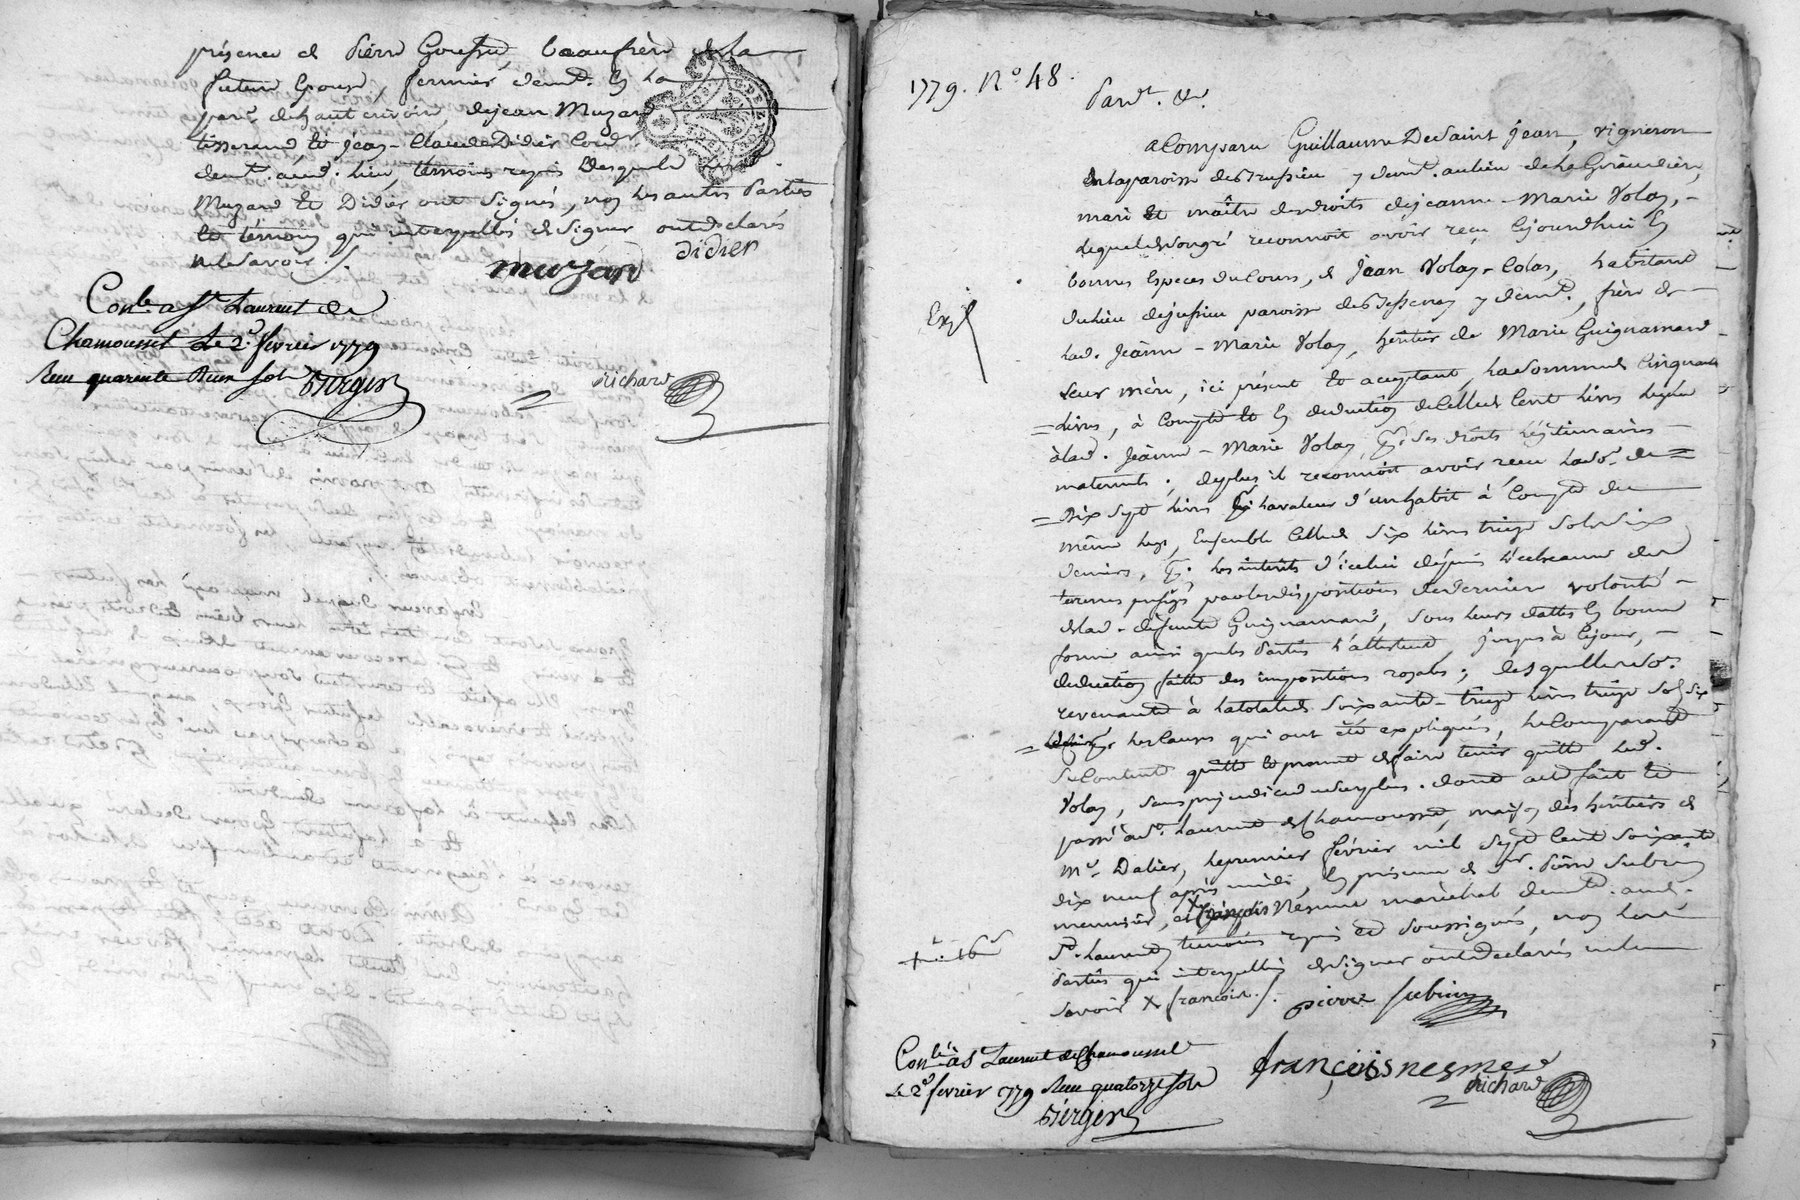 présence de Pierre beaufrère de la
future Epouse, fermier demt. en la
parr. de hauterivoire, de jean Muzard
tisserand et jean-Claude Didier
demt. aud. lieu, témoins requis desquels
Muzard et Didier ont signés, non les autres Parties
et témoin qui interpellés de signer ont declarés
ne le savoir ./.
muzard didier
Conlé a St Laurent de
Chamousset Le 2e. fevrier 1779
Reçu quarente Deux sols Berger
Richard
1779. N° 48.
Pardt. &c.
a Comparu Guillaume De Saint jean, vigneron
en la paroisse de Brussieu y demt. au lieu de la Giraudière,
mari et maître des droits de jeanne-Marie Volay,
lequel de son gré reconnoit avoir reçu cejourdhui en
bonnes Especes du Cours, de Jean Volay-Colas, habitant
du lieu de jussieu paroisse de Bessenay y demt., frère de
lad. Jeanne-Marie Volay, héritier de Marie Guignamard
Exp.
leur mère, ici présent et acceptant, la somme de Cinquante
Livres, à Compte et en deduction de Celle de Cent livres léguée
à lad. Jeanne-Marie Volay, pr. ses droits légitimaires
maternels; de plus il reconnoit avoir reçu la so. de
Dix sept livres pr. la valeur d'un habit à Compte du
même legs, Ensemble Celle de six livres treize sols six
deniers, pr. les interêts d'icelui depuis l'echeance des
termes prefigés par les dispositions de derniere volonté
de lad. défunte Guignamard, sous leurs dattes en bonne
forme ainsi que les Parties l'attestent, jusques à cejour,
deduction faitte des impositions royales; desquelles so.
revenantes à la totale de soixante-treize livres treize sols six
deniers pr. les causes qui ont été expliqués, le Comparant
se Contente quitte et promet de faire tenir quitte led.
Volay, sans prejudice du surplus. dont acte fait et
passé à St. Laurent de Chamousset, maison des héritiers de
Me. Dalier, le premier février mil sept Cent soixante
dix neuf après midi, en présence de Sr. Pierre Subrin
menuisier, et françois Nesme maréchal demt. aud.
St. Laurent, temoins requis et soussignés, non les
Parties qui interpellées de signer ont declarés ne le
savoir x françois ./. pierre subrin
Conlé à St Laurent de Chamousset
Le 2e fevrier 1779 Reçu quatorze sols
Berger
françois nesme
Richard